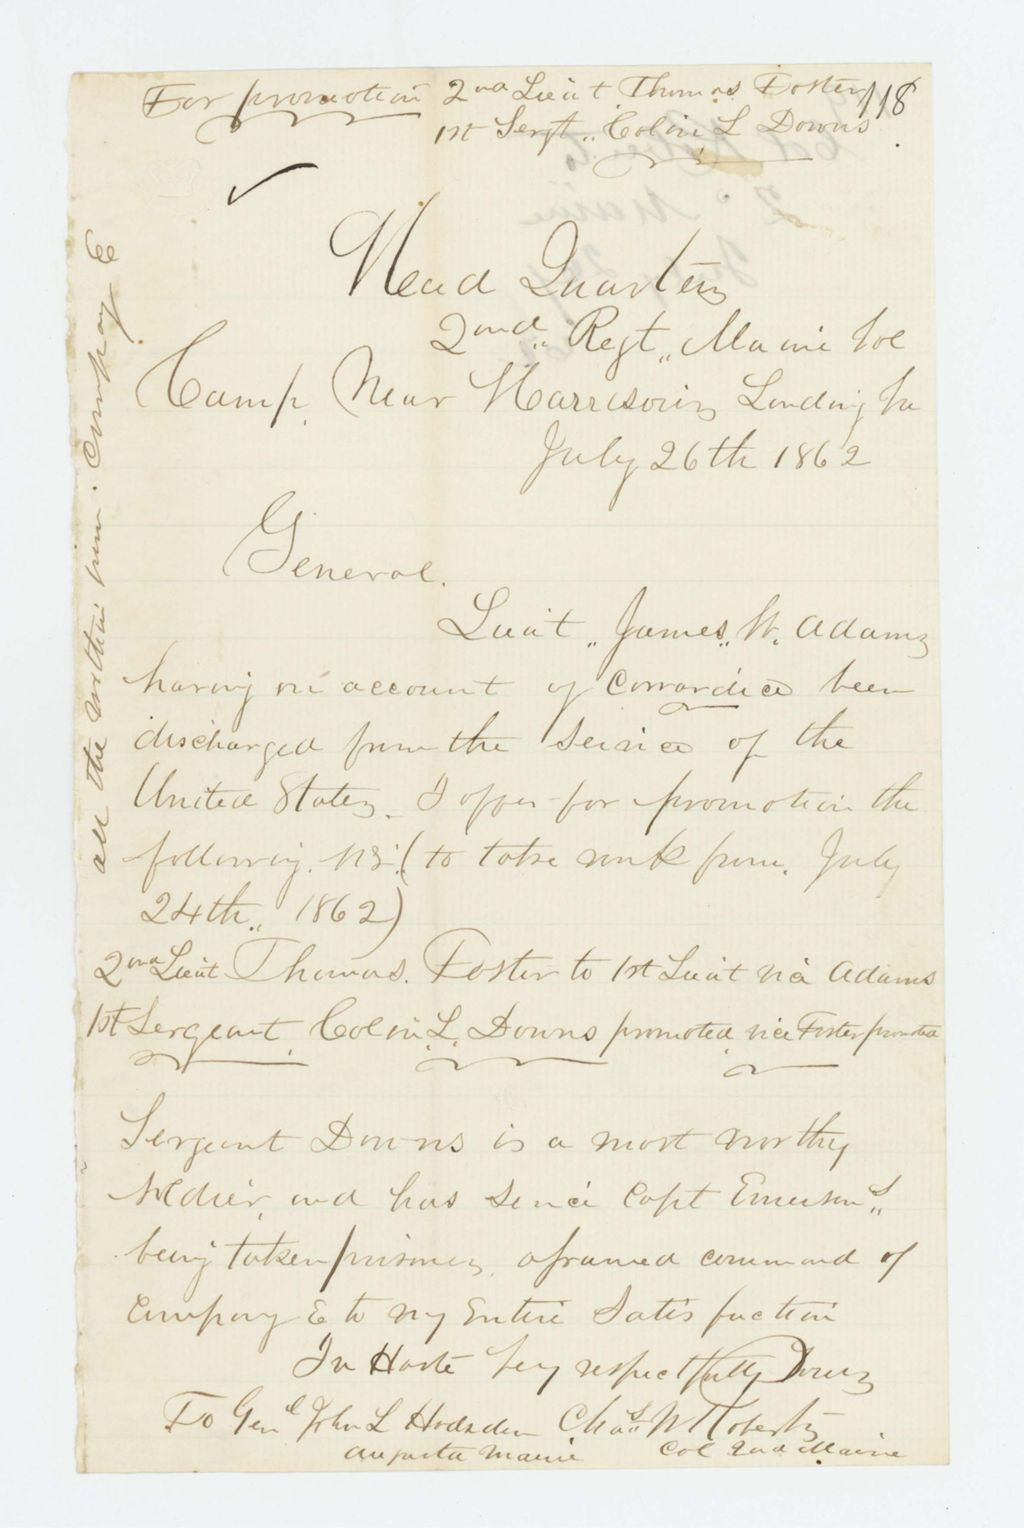 For promotion 2nd Lieut Thomas Foster 118
1st Sergt,, Colin L Downs
Head Quarters
2ond,, Regt,, Maine Vol
Camp, Near Harrisons Landing Va
July 26th 1862
General.
Lieut,, James,, W. Adams
having on account of Cowardice been
discharged from the Service of the
United States. I offer for promotion the
following. viz (to take rank from. July
24th,, 1862)
2ond Lieut Thomas. Foster to 1st Lieut vice Adams
1st Sergeant. Colin. L. Downs promoted, vice Foster promoted
Sergeant Downs is a most worthy
soldier, and has since Capt Emerson,,s
being taken prisoner, assumed command of
Company E to my Entire Satisfaction
In Haste Very respectfully Yours
To Genl John L Hodsdon Chas W Roberts
Augusta Maine Col 2nd Maine
all the within from. Company E